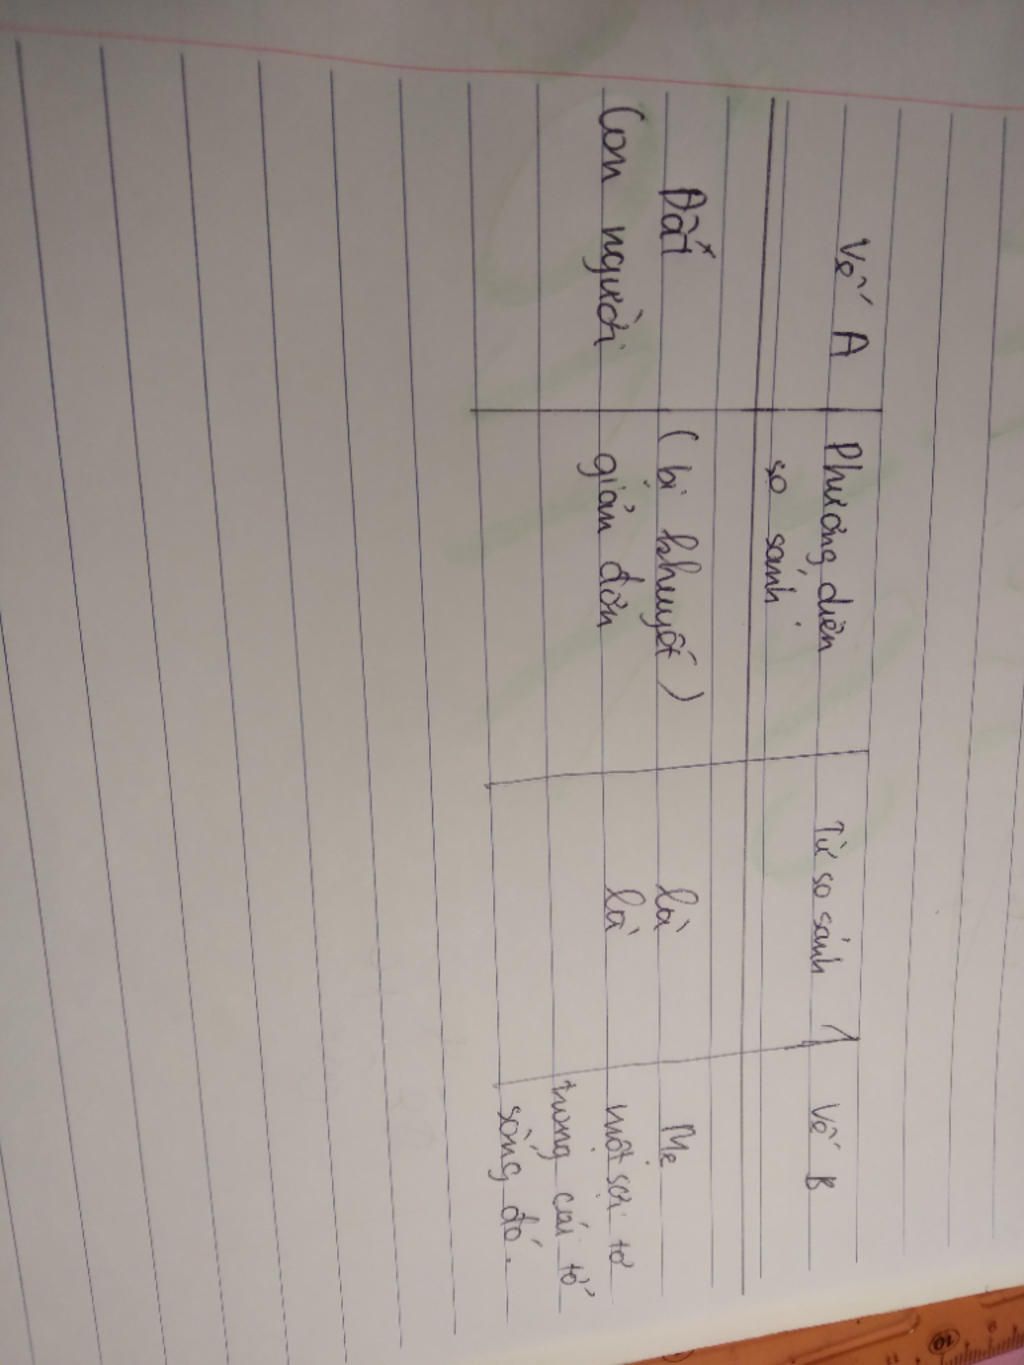 Vế A | Phương diện | Từ so sánh | Vế B
so sánh
Đất | (bị khuyết) | là | Mẹ
Con người | giản đơn | là | một sợi tơ
trong cái tổ
sống đó.
10